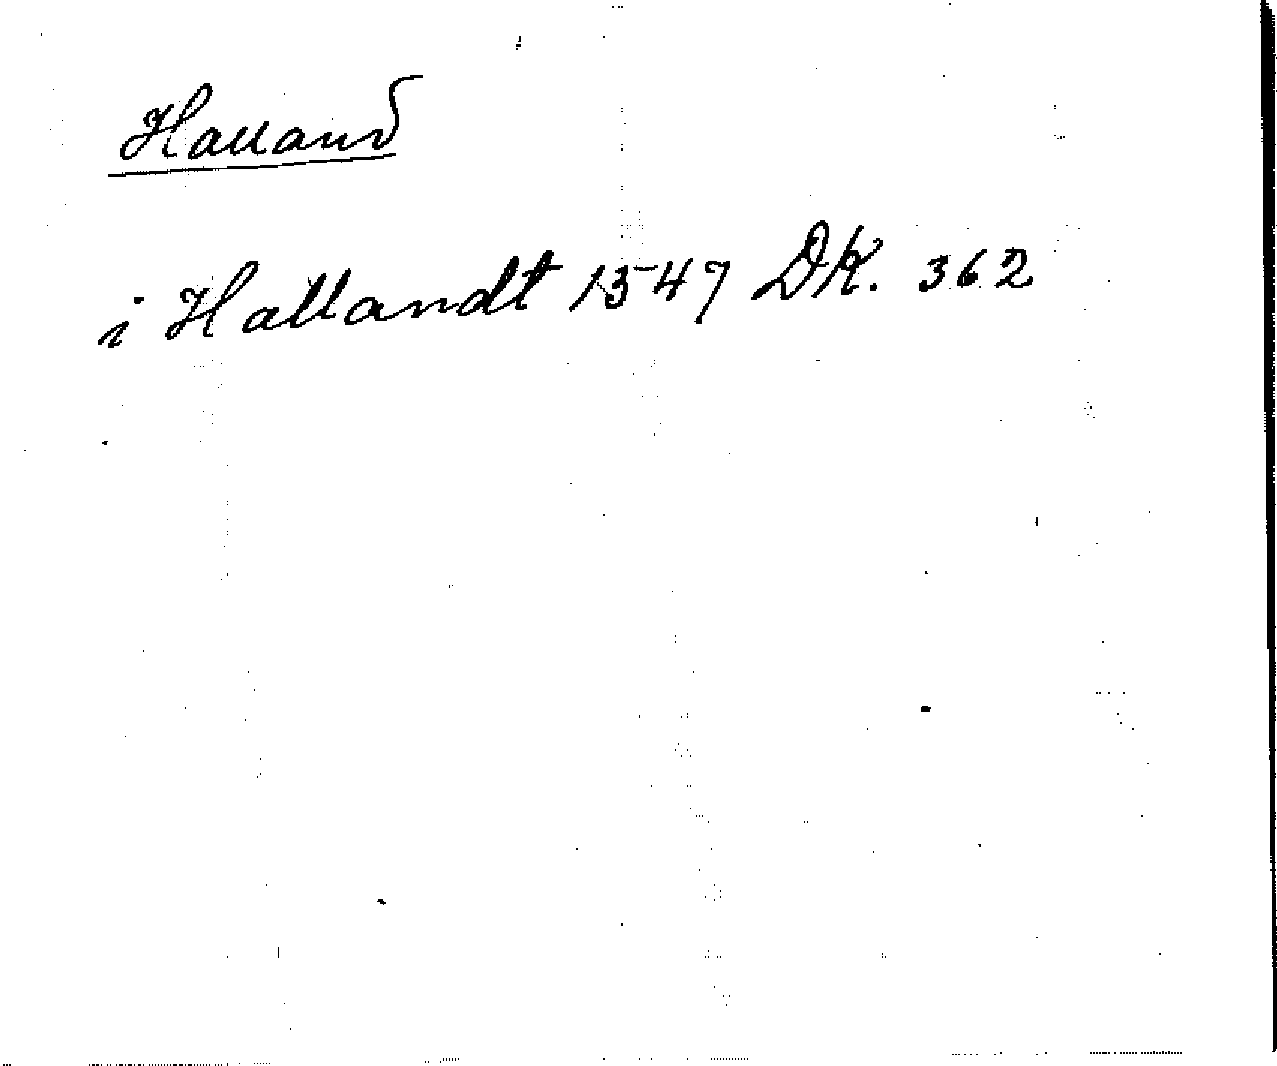 Halland
i Hallandt 1547 DK. 362